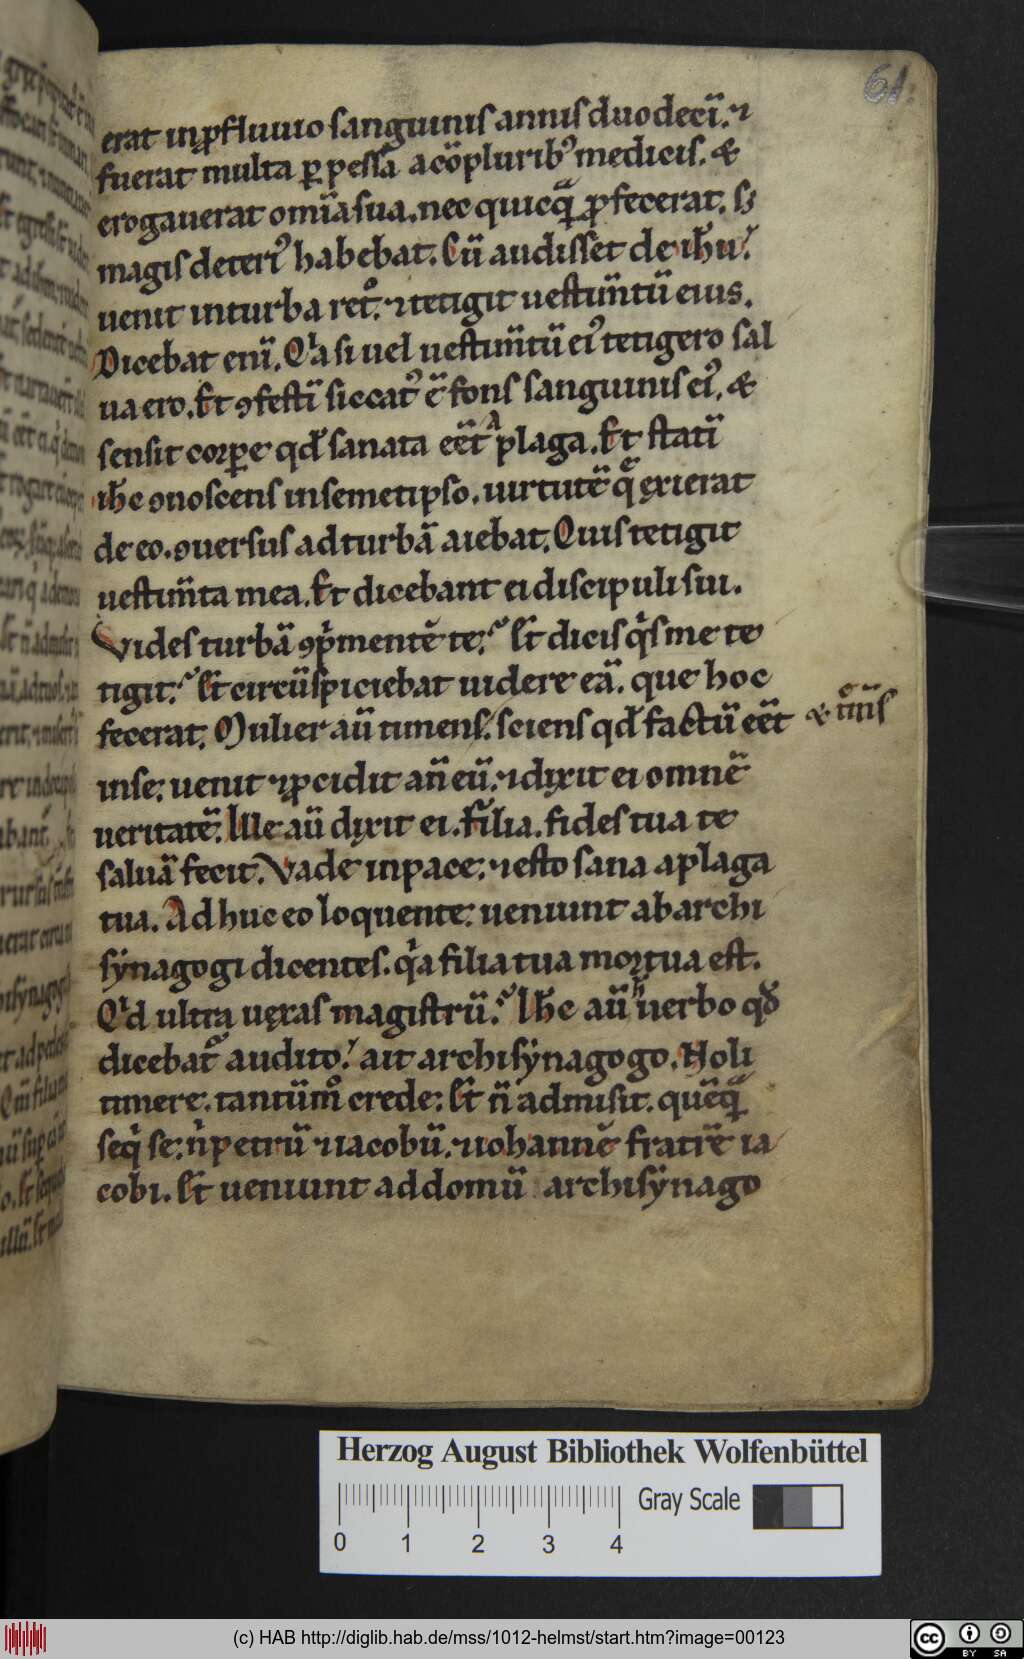 61.
erat in ꝓfluuio sanguinis annis duodecī. ⁊
fuerat multa ꝑpessa a cōpluribꝰ medicis. &
erogauerat omīa sua. nec quicq̄ ꝓfecerat. sꝫ
magis deteriꝰ habebat. Cū audisset de ih̄u.
uenit in turba ret°. ⁊ tetigit uestim̄tū eius.
Dicebat enī. Qͥa si uel uestim̄tū eiꝰ tetigero sal
ua ero. Et ꝯfestī siccatꝰ ē fons sanguinis eiꝰ. &
sensit corpore qd̄ sanata eēt a plaga. Et statī
ih̄c ꝯnoscens in semetipso. uirtutē q̄ exierat
de eo. ꝯuersus ad turbā aiebat. Quis tetigit
uestim̄ta mea. Et dicebant ei discipuli sui.
Vides turbā ꝯpͥmentē te. Et dicis qͥs me te
tigit. Et circūspiciebat uidere eā. que hoc
fecerat. Mulier aū timens. sciens qd̄ factū eēt
in se. uenit ⁊ ꝓcidit an̄ eū. ⁊ dixit ei omnē
ueritatē. Ille aū dixit ei. Filia. fides tua te
saluā fecit. Vade in pace. ⁊ esto sana a plaga
tua. Adhuc eo loquente. ueniunt ab archi
synagogi dicentes. qͥa filia tua mortua est.
Qͥd ultra uexas magistrū. Ih̄c aū ħ uerbo qd̄
dicebat᷑ audito. ait archisynagogo. Noli
timere. tantūm° crede. Et n̄ admisit. quēq̄
seqͥ se. nͥ petrū ⁊ iacobū. ⁊ iohannē fratrē ia
cobi. Et ueniunt ad domū archisynago
Herzog August Bibliothek Wolfenbüttel
0 1 2 3 4
Gray Scale
(c) HAB http://diglib.hab.de/mss/1012-helmst/start.htm?image=00123
cc BY SA